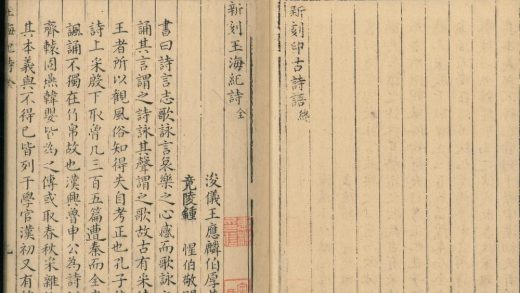 新刻印古詩語 終
新刻玉海紀詩 全
浚儀王應麟伯厚
竟陵鍾 惺伯敬
書曰詩言志歌詠言哀樂之心感而歌詠
誦其言謂之詩詠其聲謂之歌故古有采
王者所以觀風俗知得失自考正也孔子
詩上采殷下取魯凡三百五篇遭秦而全
諷誦不獨在竹帛故也漢興魯申公為詩
齊轅固燕韓嬰皆為之傳或取春秋采雜
其本義與不得已皆列于學官漢初又有
海紀詩 全